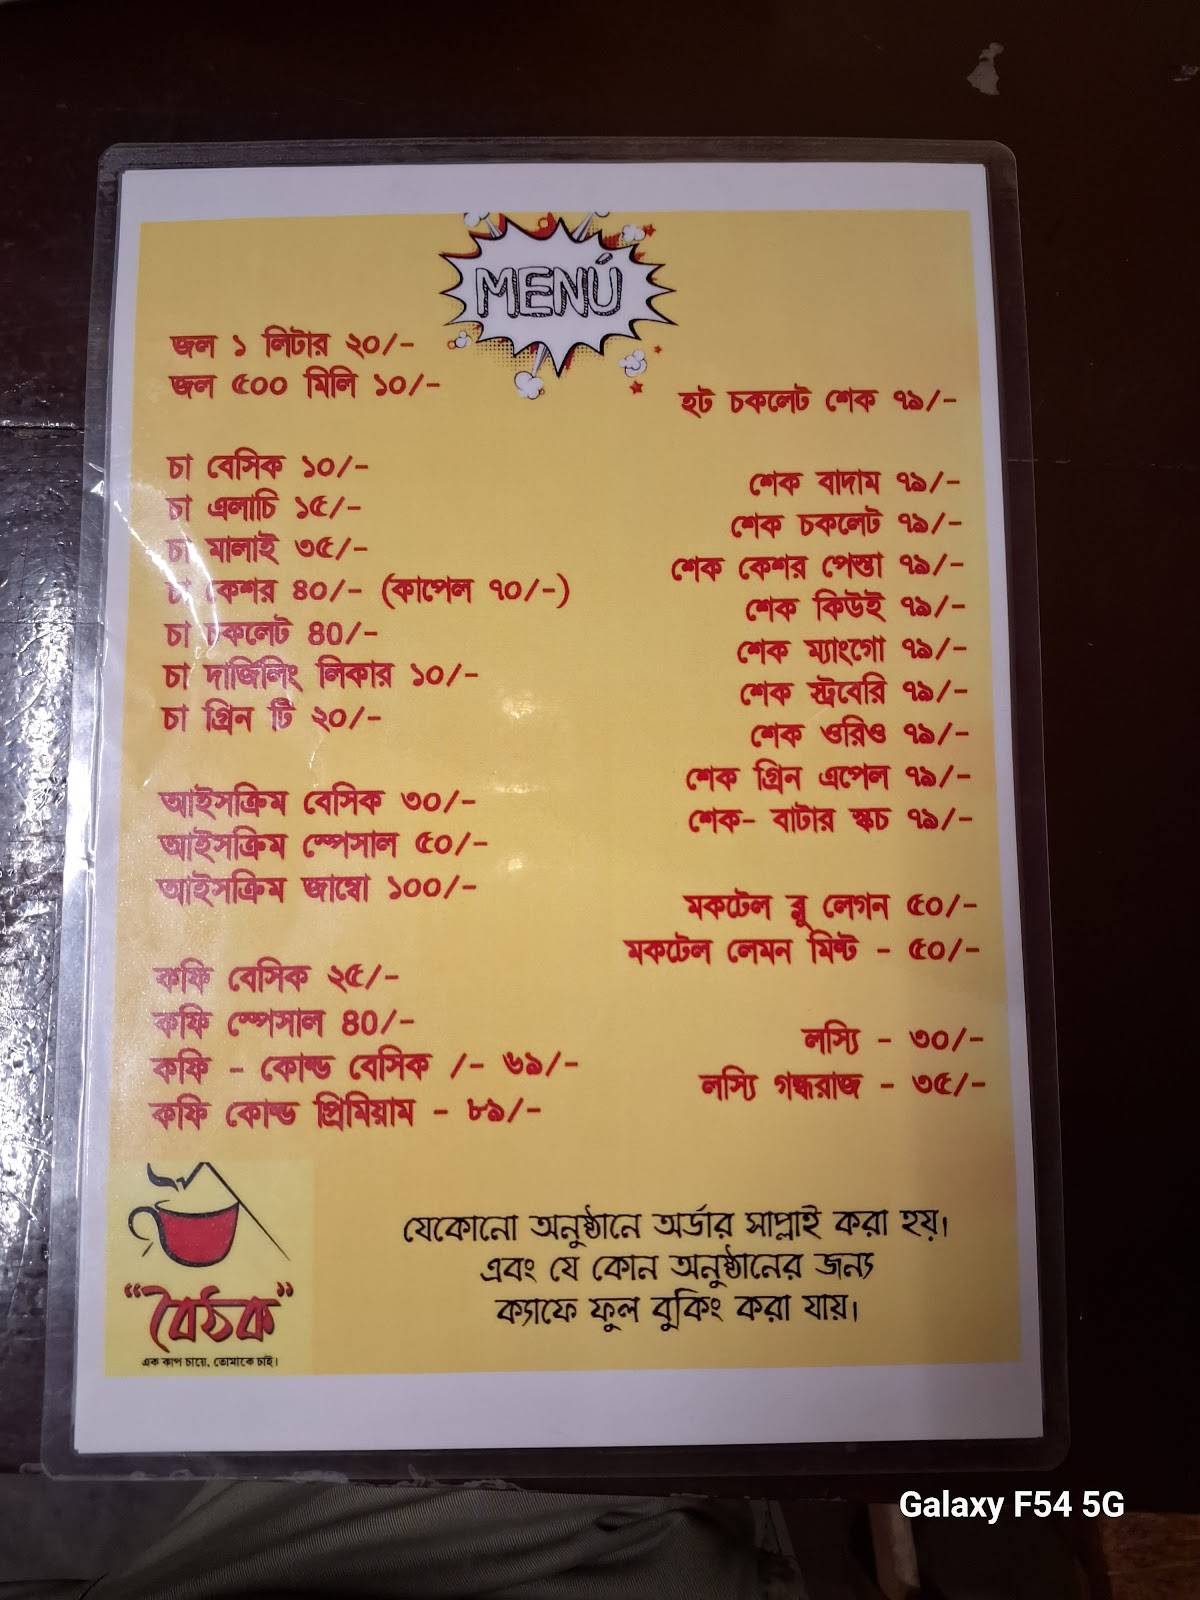 MENÚ
জল ১ লিটার ২০/-
জল ৫০০ মিলি ১০/-
চা বেসিক ১০/-
চা এলাচি ১৫/-
চা মালাই ৩৫/-
চা কেশর ৪০/- (কাপেল ৭০/-)
চা চকলেট ৪০/-
চা দার্জিলিং লিকার ১০/-
চা গ্রিন টি ২০/-
আইসক্রিম বেসিক ৩০/-
আইসক্রিম স্পেসাল ৫০/-
আইসক্রিম জাম্বো ১০০/-
কফি বেসিক ২৫/-
কফি স্পেসাল ৪০/-
কফি - কোল্ড বেসিক /- ৬৯/-
কফি কোল্ড প্রিমিয়াম - ৮৯/-
হট চকলেট শেক ৭৯/-
শেক বাদাম ৭৯/-
শেক চকলেট ৭৯/-
শেক কেশর পেস্তা ৭৯/-
শেক কিউই ৭৯/-
শেক ম্যাংগো ৭৯/-
শেক স্ট্রবেরি ৭৯/-
শেক ওরিও ৭৯/-
শেক গ্রিন এপেল ৭৯/-
শেক- বাটার স্কচ ৭৯/-
মকটেল ব্লু লেগন ৫০/-
মকটেল লেমন মিন্ট - ৫০/-
লস্যি - ৩০/-
লস্যি গন্ধরাজ - ৩৫/-
যেকোনো অনুষ্ঠানে অর্ডার সাপ্লাই করা হয়।
এবং যে কোন অনুষ্ঠানের জন্য
ক্যাফে ফুল বুকিং করা যায়।
"বৈঠক"
এক কাপ চায়ে, তোমাকে চাই।
Galaxy F54 5G